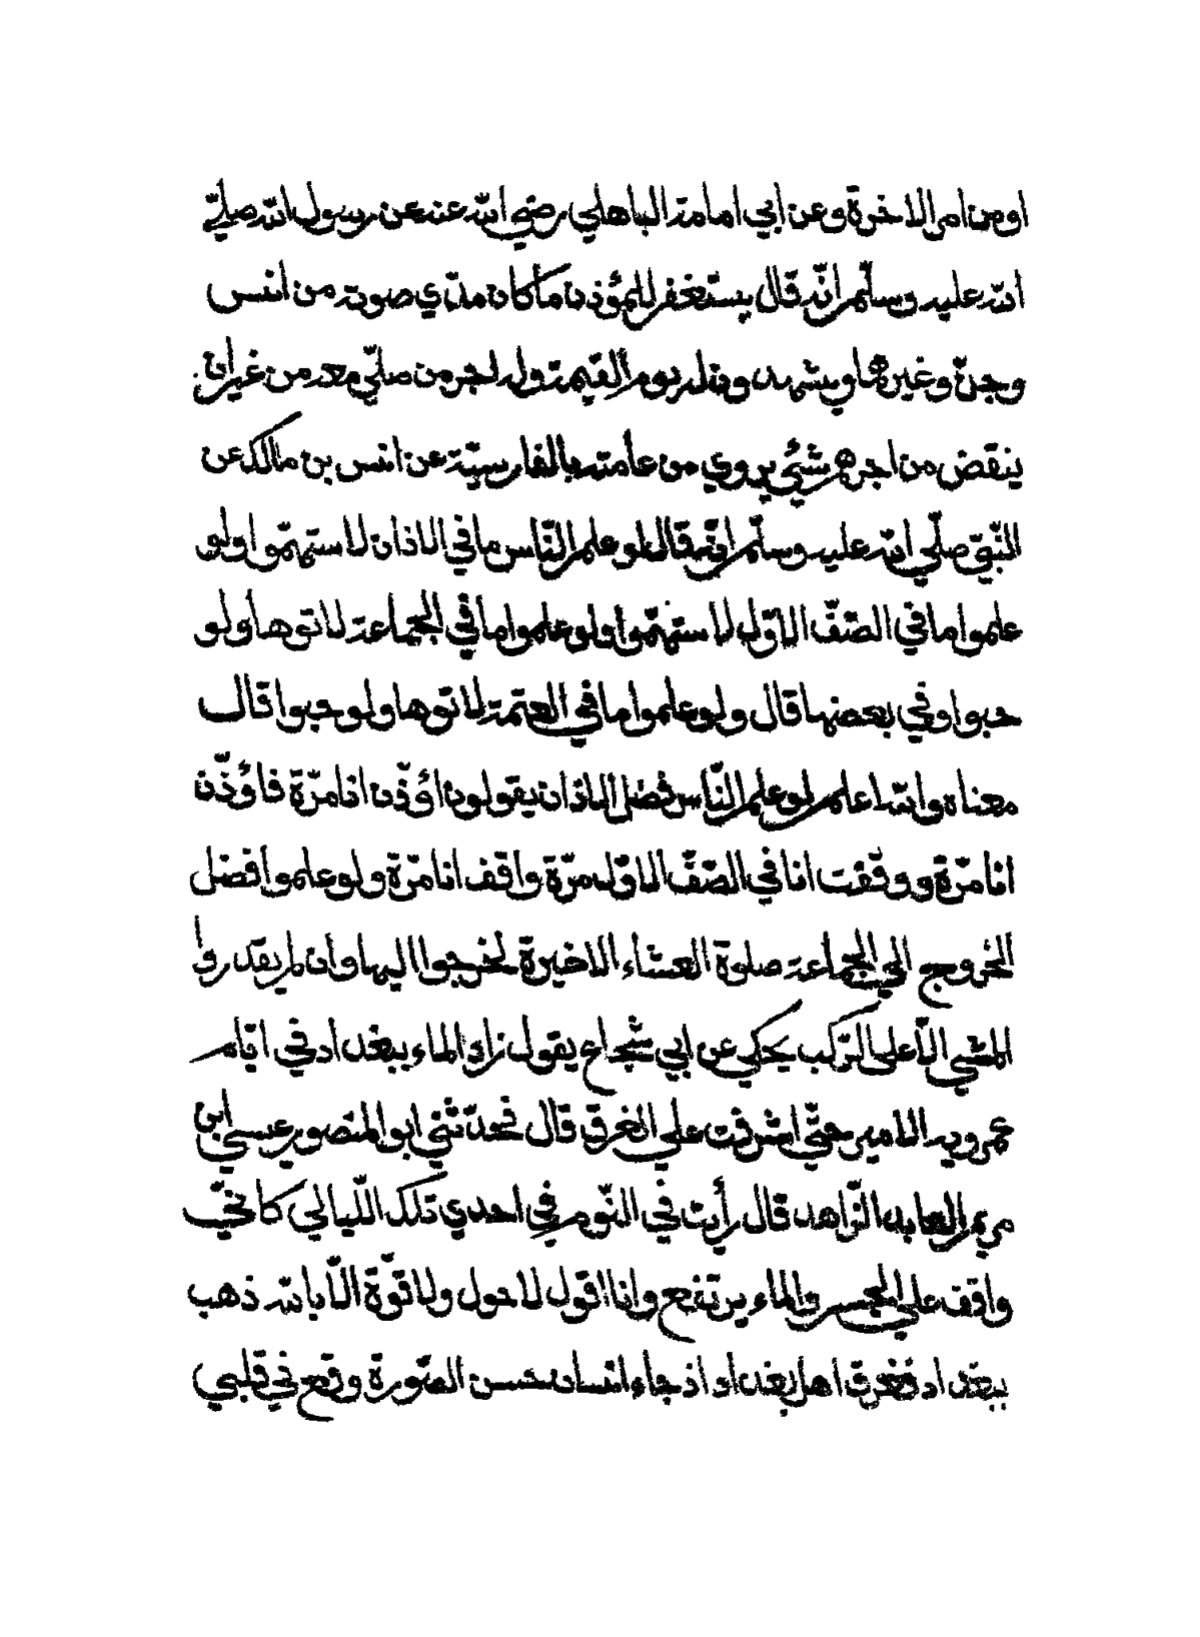 او من امر الاخرة وعن ابي امامة الباهلي رضي الله عنه عن رسول الله صلي
الله عليه وسلم انّه قال يستغفر للمؤذن ما كان مدّي صوته من انس
وجنّ وغيرهما ويشهد له يوم القيمة وله اجر من صلّي معه من غير ان
ينقض من اجرهم شئ يروي من عامته بالفارسيّة عن انس بن مالك عن
النّبيّ صلّي الله عليه وسلّم انّه قال لو علم النّاس ما في الاذان لاستهمّوا ولو
علموا ما في الصّفّ الاوّل لاستهمّوا ولو علموا ما في الجماعة لاتوها ولو
حبوا وفي بعضها قال ولو علموا ما في العتمة لاتوها ولو حبوا قال
معناه والله اعلم لو علم النّاس فضل الاذان يقولون اؤذّن انا مرّة فاؤذّن
انا مرّة ووقفت انا في الصّفّ الاوّل مرّة واقف انا مرّة ولو علموا فضل
الخروج الي الجماعة صلوة العشاء الاخيرة لخرجوا اليها وان لم يقدروا
المشي الّا علي الرّكب يحكي عن ابي شجاع يقول زاد الماء ببغداد في ايّام
عمرويه الامير حتّي اشرفت علي الغرق قال فحدّثني ابو المنصور عيسي ابن
مريم العابد الزّاهد قال رأيت في النّوم في احدي تلك اللّيالي كانّي
واقف علي الجسر والماء يرتفع وانا اقول لا حول ولا قوّة الّا بالله ذهب
ببغداد فغرق اهل بغداد اذ جاء انسان حسن الصّورة وقع في قلبي